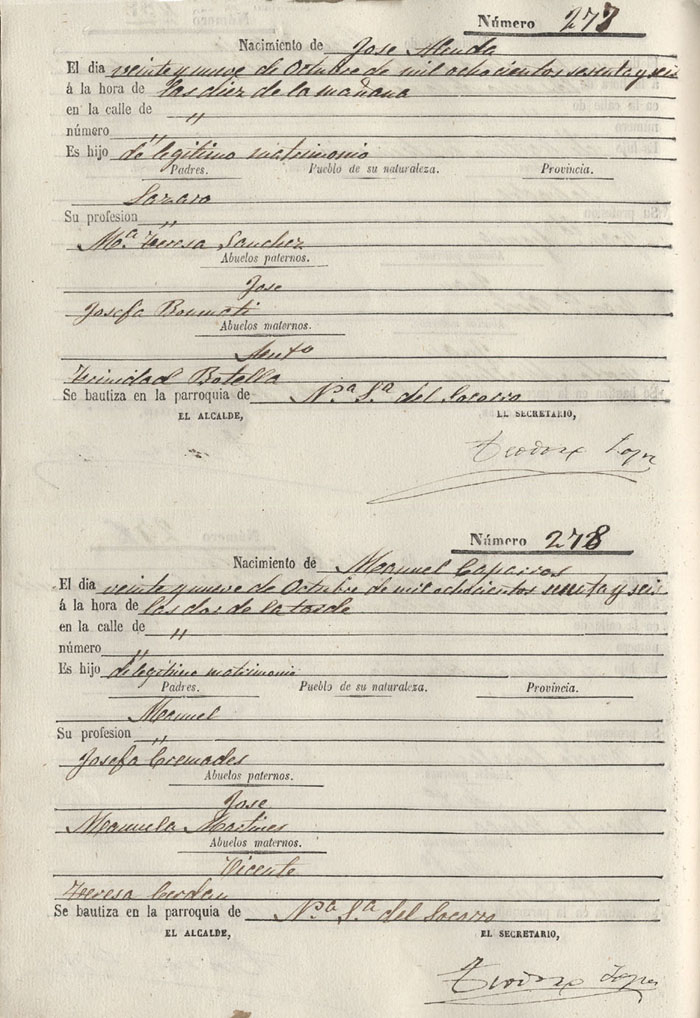 Número 277
Nacimiento de Jose Alenda
El dia veinte y nueve de Octubre de mil ochocientos sesenta y seis
á la hora de las diez de la mañana
en la calle de "
número "
Es hijo de legitimo matrimonio
Padres. Pueblo de su naturaleza. Provincia.
Lazaro
Su profesion "
Mª. Teresa Sanchez
Abuelos paternos.
Jose
Josefa Boumati
Abuelos maternos.
Trinidad Botella
Se bautiza en la parroquia de Nª. Sª. del Socorro
EL ALCALDE, EL SECRETARIO,
Teodoro Lopez
Número 278
Nacimiento de Manuel Caparros
El dia veinte y nueve de Octubre de mil ochocientos sesenta y seis
á la hora de las dos de la tarde
en la calle de "
número "
Es hijo de legitimo matrimonio
Padres. Pueblo de su naturaleza. Provincia.
Manuel
Su profesion "
Josefa Cremades
Abuelos paternos.
Jose
Manuela Martines
Abuelos maternos.
Vicente
Teresa Cerdan
Se bautiza en la parroquia de Nª. Sª. del Socorro
EL ALCALDE, EL SECRETARIO,
Teodoro Lopez